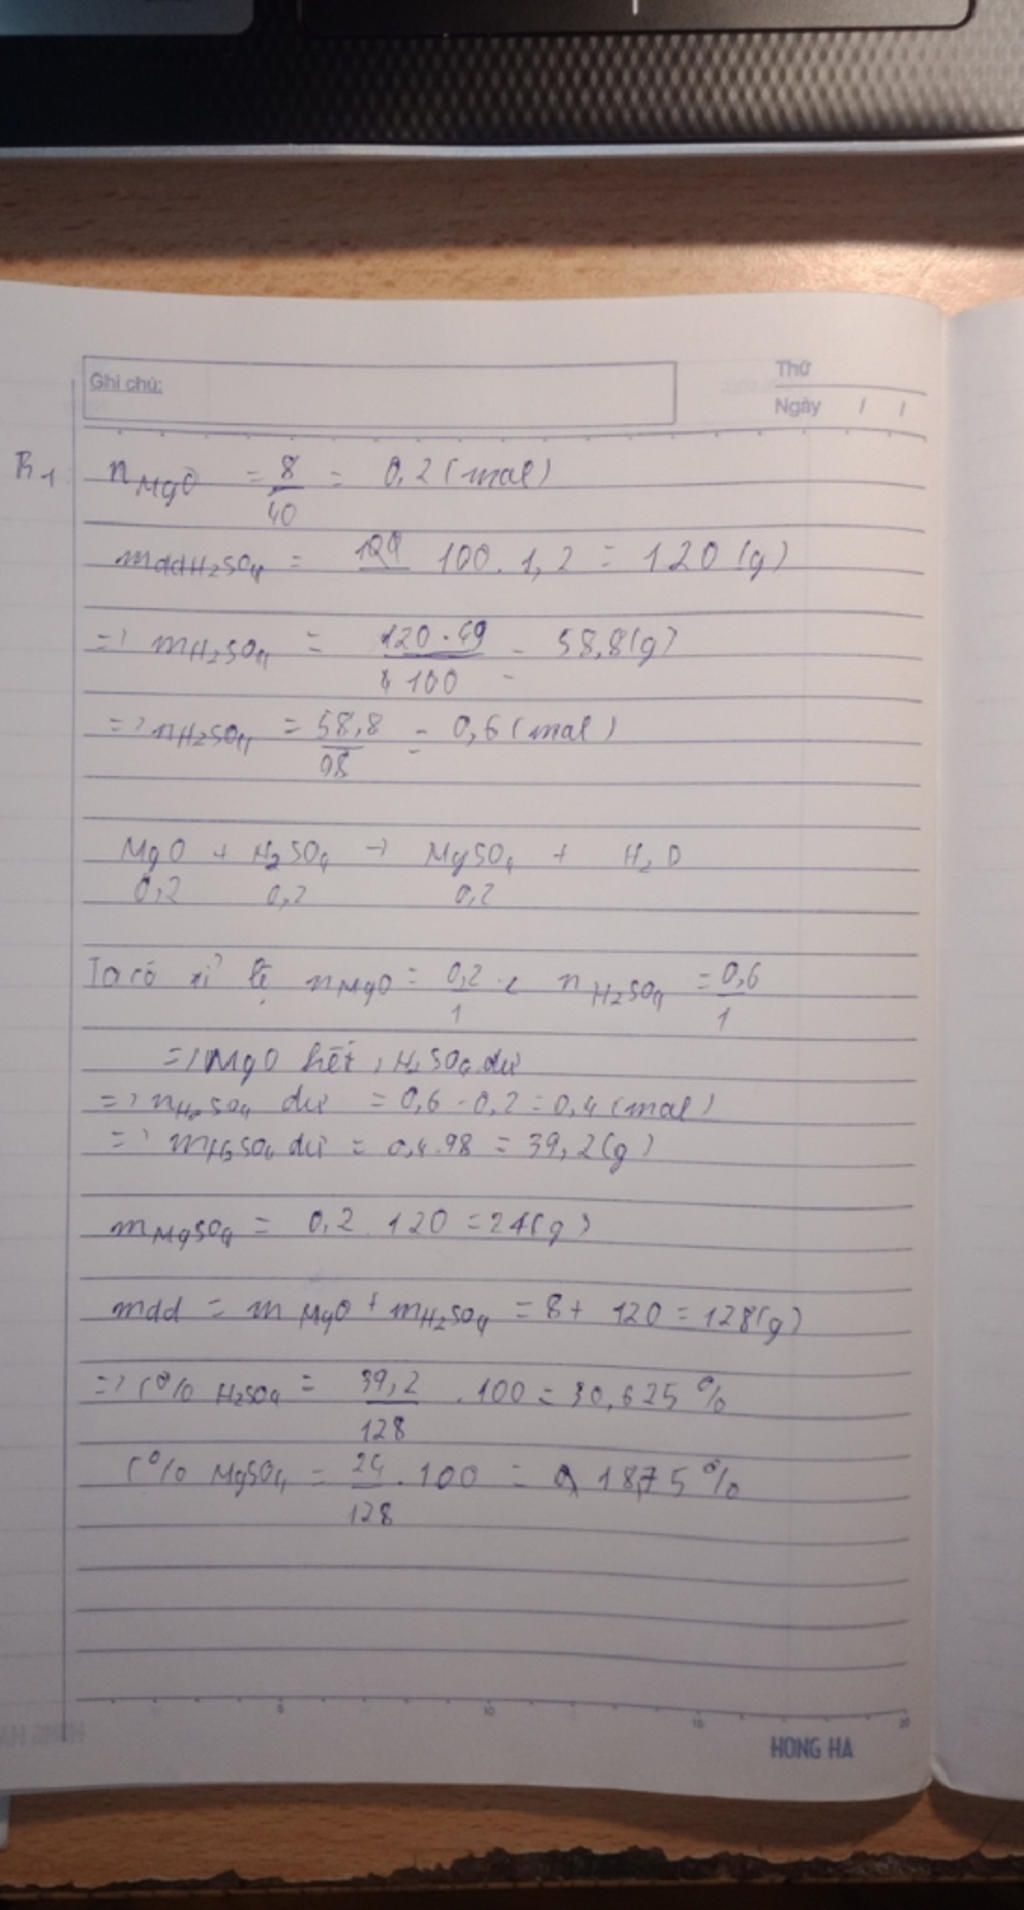 Ghi chú:
Thứ
Ngày / /
B1 nMgO = 8/40 = 0,2 (mol)
mddH2SO4 = 100 . 1,2 = 120 (g)
=> mH2SO4 = 120.49/100 = 58,8 (g)
=> nH2SO4 = 58,8/98 = 0,6 (mol)
MgO + H2SO4 -> MgSO4 + H2O
0,2 0,2 0,2
Ta có tỉ lệ nMgO = 0,2/1 < nH2SO4 = 0,6/1
=> MgO hết, H2SO4 dư
=> nH2SO4 dư = 0,6 - 0,2 = 0,4 (mol)
=> mH2SO4 dư = 0,4.98 = 39,2 (g)
mMgSO4 = 0,2 . 120 = 24 (g)
mdd = mMgO + mH2SO4 = 8 + 120 = 128 (g)
=> C% H2SO4 = 39,2/128 . 100 = 30,625 %
C% MgSO4 = 24/128 . 100 = 18,75 %
5 10 15 20
HONG HA